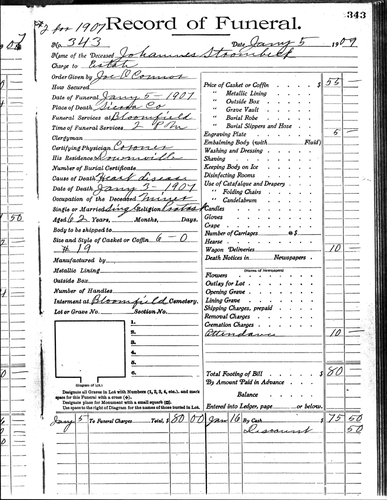 #2 for 1907
Record of Funeral.
343
No. 343
Date Jany 5 1907
Name of the Deceased Johannes
Charge to Estate
Order Given by Joe O'Connor
How Secured
Date of Funeral Jany 5 - 1907
Place of Death Sierra Co
Funeral Services at Bloomfield
Time of Funeral Services 2 P M
Clergyman
Certifying Physician Coroner
His Residence Downieville
Number of Burial Certificate
Cause of Death Heart disease
Date of Death Jany 3 - 1907
Occupation of the Deceased Miner
Single or Married Single Religion
Aged 62 Years, Months, Days.
Body to be shipped to
Size and Style of Casket or Coffin 6-0
#19
Manufactured by
Metallic Lining
Outside Box
Number of Handles
Interment at Bloomfield Cemetery.
Lot or Grave No. Section No.
1.
2.
3.
4.
5.
6.
(Diagram of Lot.)
Designate all Graves in Lot with Numbers (1, 2, 3, 4, etc.), and mark
space for this Funeral with a cross (+).
Designate place for Monument with a small square (□).
Use space to the right of Diagram for the names of those buried in Lot.
Price of Casket or Coffin $ 55
" Metallic Lining
" Outside Box
" Grave Vault
" Burial Robe
" Burial Slippers and Hose
Engraving Plate 5 -
Embalming Body (with Fluid)
Washing and Dressing
Shaving
Keeping Body on Ice
Disinfecting Rooms
Use of Catafalque and Drapery
" Folding Chairs
" Candelabrum
Candles
Gloves
Crape
Number of Carriages @ $
Hearse
Wagon Deliveries 10 -
Death Notices in Newspapers
(Names of Newspapers)
Flowers
Outlay for Lot
Opening Grave
Lining Grave
Shipping Charges, prepaid
Removal Charges
Cremation Charges
Attendance 10 -
Total Footing of Bill $ 80 -
By Amount Paid in Advance
Balance
Entered into Ledger, page or below.
Jany 5 To Funeral Charges Total, $ 80 00
Jan 16 By Cash $ 75 50
Discount 50